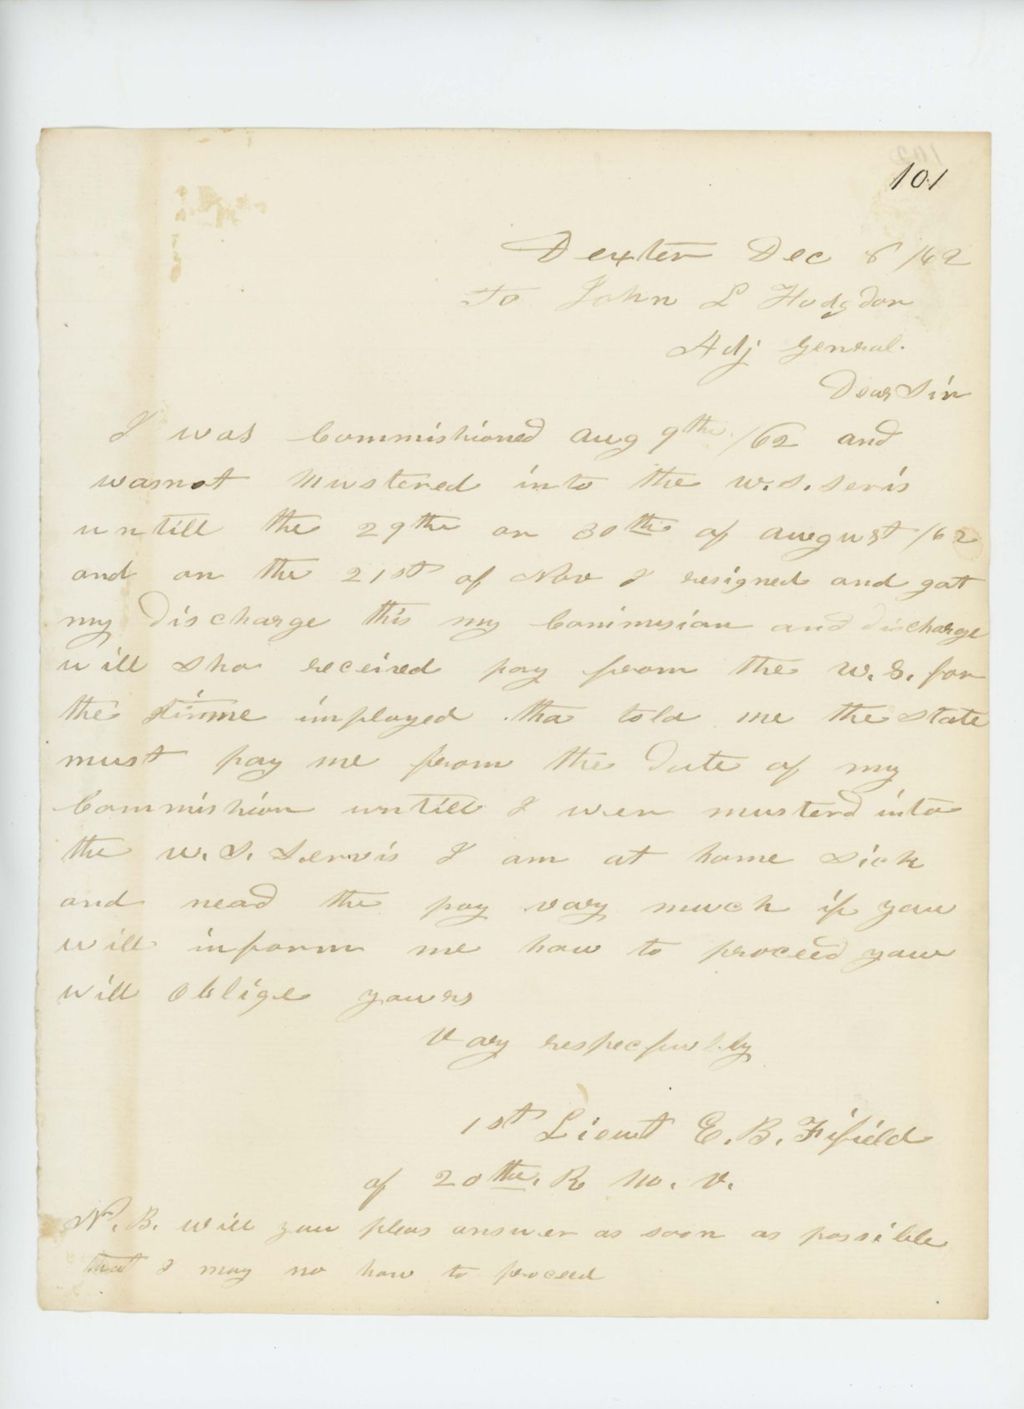 101
Dexter Dec 8 /62
To John L Hodgdon
Adj General.
Dear Sir
I was Commishioned Aug 9th /62 and
wasnot Mustered into the U.S. servis
untill the 29th or 30th of August /62
and on the 21st of Nov I resigned and got
my Discharge this my Commision and discharge
will sho received pay from the U.S. for
the time imployed tha told me the State
must pay me from the Date of my
Commishion untill I wer musterd into
the U.S. Servis I am at home Sick
and nead the pay vary much if you
will inform me how to proceed you
will oblige yours
Vary respecfully
1st Lieut E.B. Fifield
of 20th. R M. V.
N.B. will you pleas answer as soon as possible
that I may no how to proceed